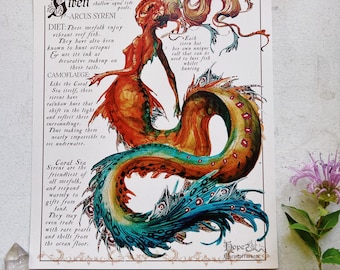 Siren
shallow aged reef
pools.
-ARCUS SYRENI
DIET: These merfolk enjoy
vibrant reef fish.
They have also been
known to hunt octopus
& use its ink as
decorative makeup on
their tails.
Each
siren has
her own unique
call that can
be used to lure fish
while
hunting
CAMOFLAUGE
Like the Coral
Sea itself, these
sirens have
rainbow hues that
shift in the light
and reflect their
surroundings.
Thus making them
nearly impossible to
see underwater.
Coral Sea
Sirens are the
friendliest of
all merfolk, and
respond warmly to
gifts from the
land. They may
even trade
with rare pearls
and shells from
the ocean floor.